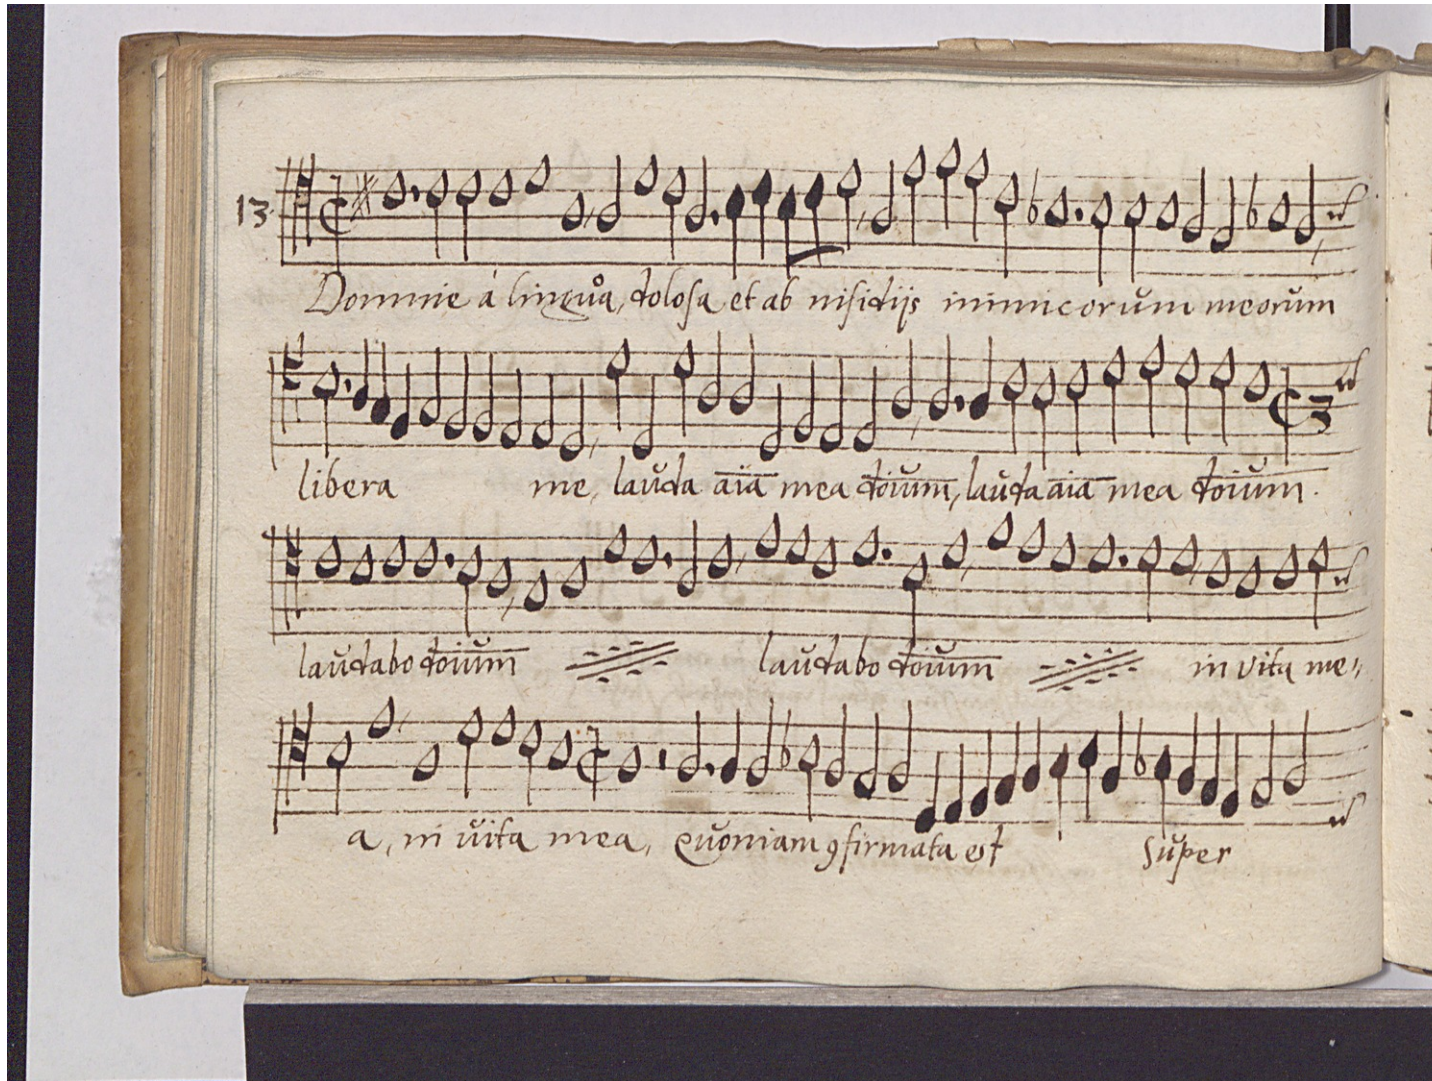 13.
Domine á lingua, dolosa et ab insidijs inimicorum meorum
libera me, lauda aīa mea doīum, lauda aīa mea doīum.
laudabo doīum laudabo doīum in vita me„
a, in vita mea, Quoniam ꝯfirmata est super